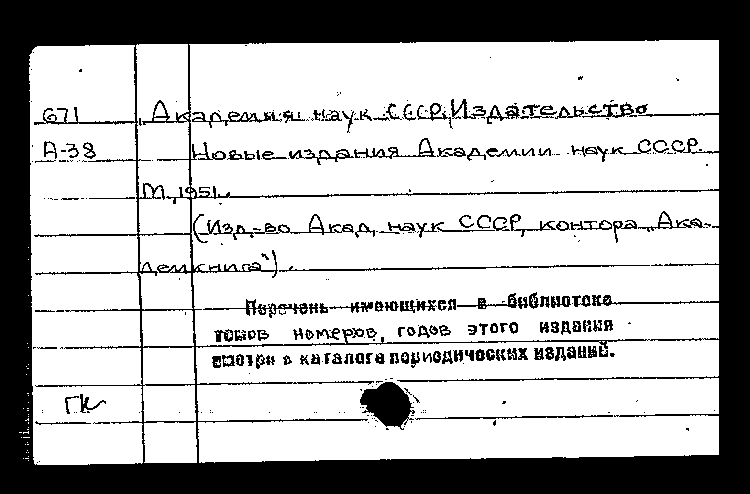 671 Академия наук СССР. Издательство
А-38 Новые издания Академии наук СССР.
М., 1951.
(Изд-во Акад. наук СССР, контора „Ака-
демкнига").
Перечень имеющихся в библиотеке
томов номеров, годов этого издания
смотри в каталоге периодических изданий.
ГК